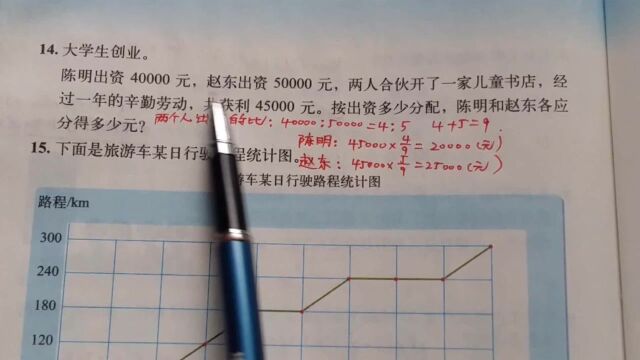 14. 大学生创业。
陈明出资 40000 元，赵东出资 50000 元，两人合伙开了一家儿童书店，经
过一年的辛勤劳动，共获利 45000 元。按出资多少分配，陈明和赵东各应
分得多少元？
两个人出 的比：40000:50000=4:5 4+5=9
陈明：45000×4/9=20000(元)
赵东：45000×5/9=25000(元)
15. 下面是旅游车某日行驶路程统计图。
游车某日行驶路程统计图
路程/km
300
240
180
120